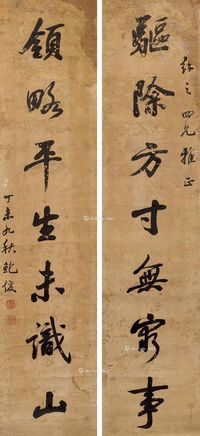 之四兄雅正
驅除方寸無窮事
領略平生未識山
丁未九秋鮑俊